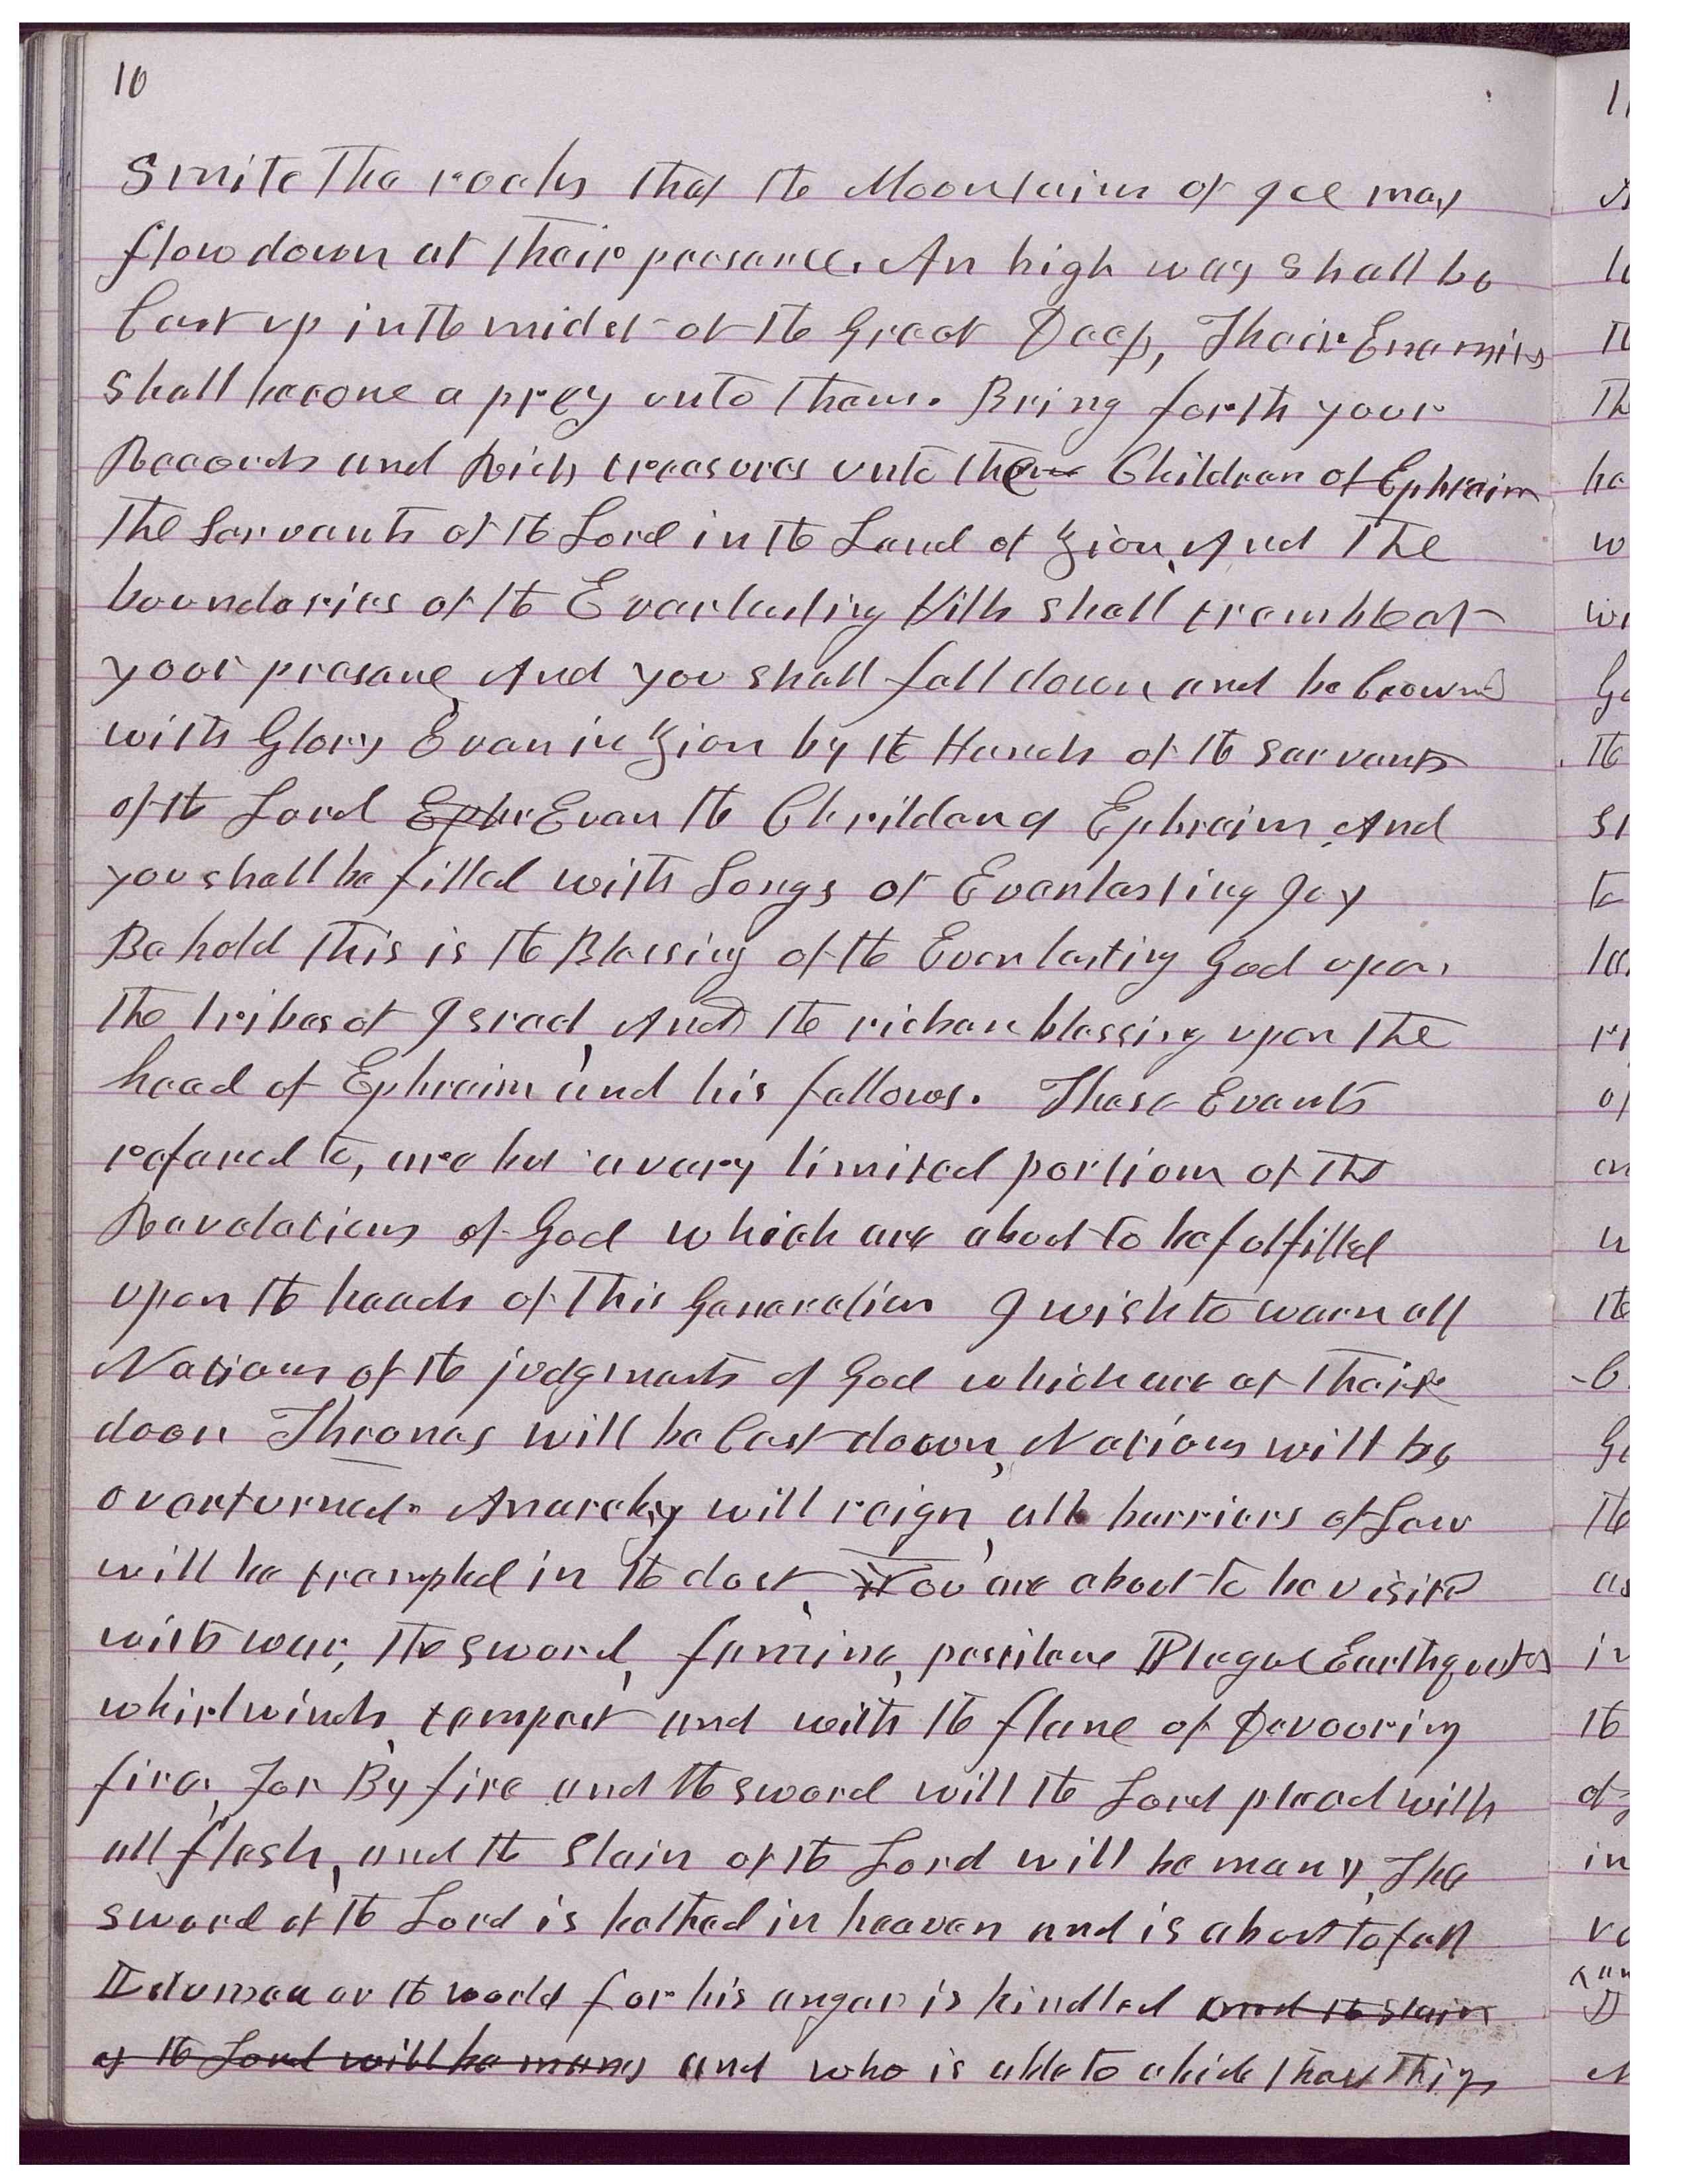 10
Smite the rocks that the Mountains of Ice may
flow down at their presance. An high way shall be
Cast up in the midst of the Great Deep, Their Enemies
shall become a prey unto them. Bring forth your
Records and Rich treasures unto the Children of Ephraim
The Servants of the Lord in the Land of Zion, And the
boundaries of the Everlasting Hills shall tremble at
your presance, And you shall fall down and be Crownd
with Glory Even in Zion by the Hands of the servants
of the Lord Ephr Even the Chrildand Ephraim, And
you shall be filled with Songs of Evenlasting Joy
Behold this is the Blessing of the Everlasting God upon
the tribes of Israel, And the richer blessing upon the
head of Ephraim and his fellows. These Events
refered to, are but a very limited portion of the
Revelations of God which are about to be fulfilled
upon the heads of this Generation I wish to warn all
Nations of the judgments of God which are at their
door Thrones will be Cast down, Nations will be
overturned. Anarchy will reign, all barriers of Law
will be trampled in the dust, You are about to be visited
with war, the sword, famine, pestilence Plague Earthquakes
whirlwinds, tempest and with the flame of Devouring
fire, For By fire and the sword will the Lord plead with
all flesh, and the Slain of the Lord will be many, The
sword of the Lord is bathed in heaven and is about to fall
Idumea or the world for his anger is kindled and the slain
of the Lord will be many and who is able to abide these things